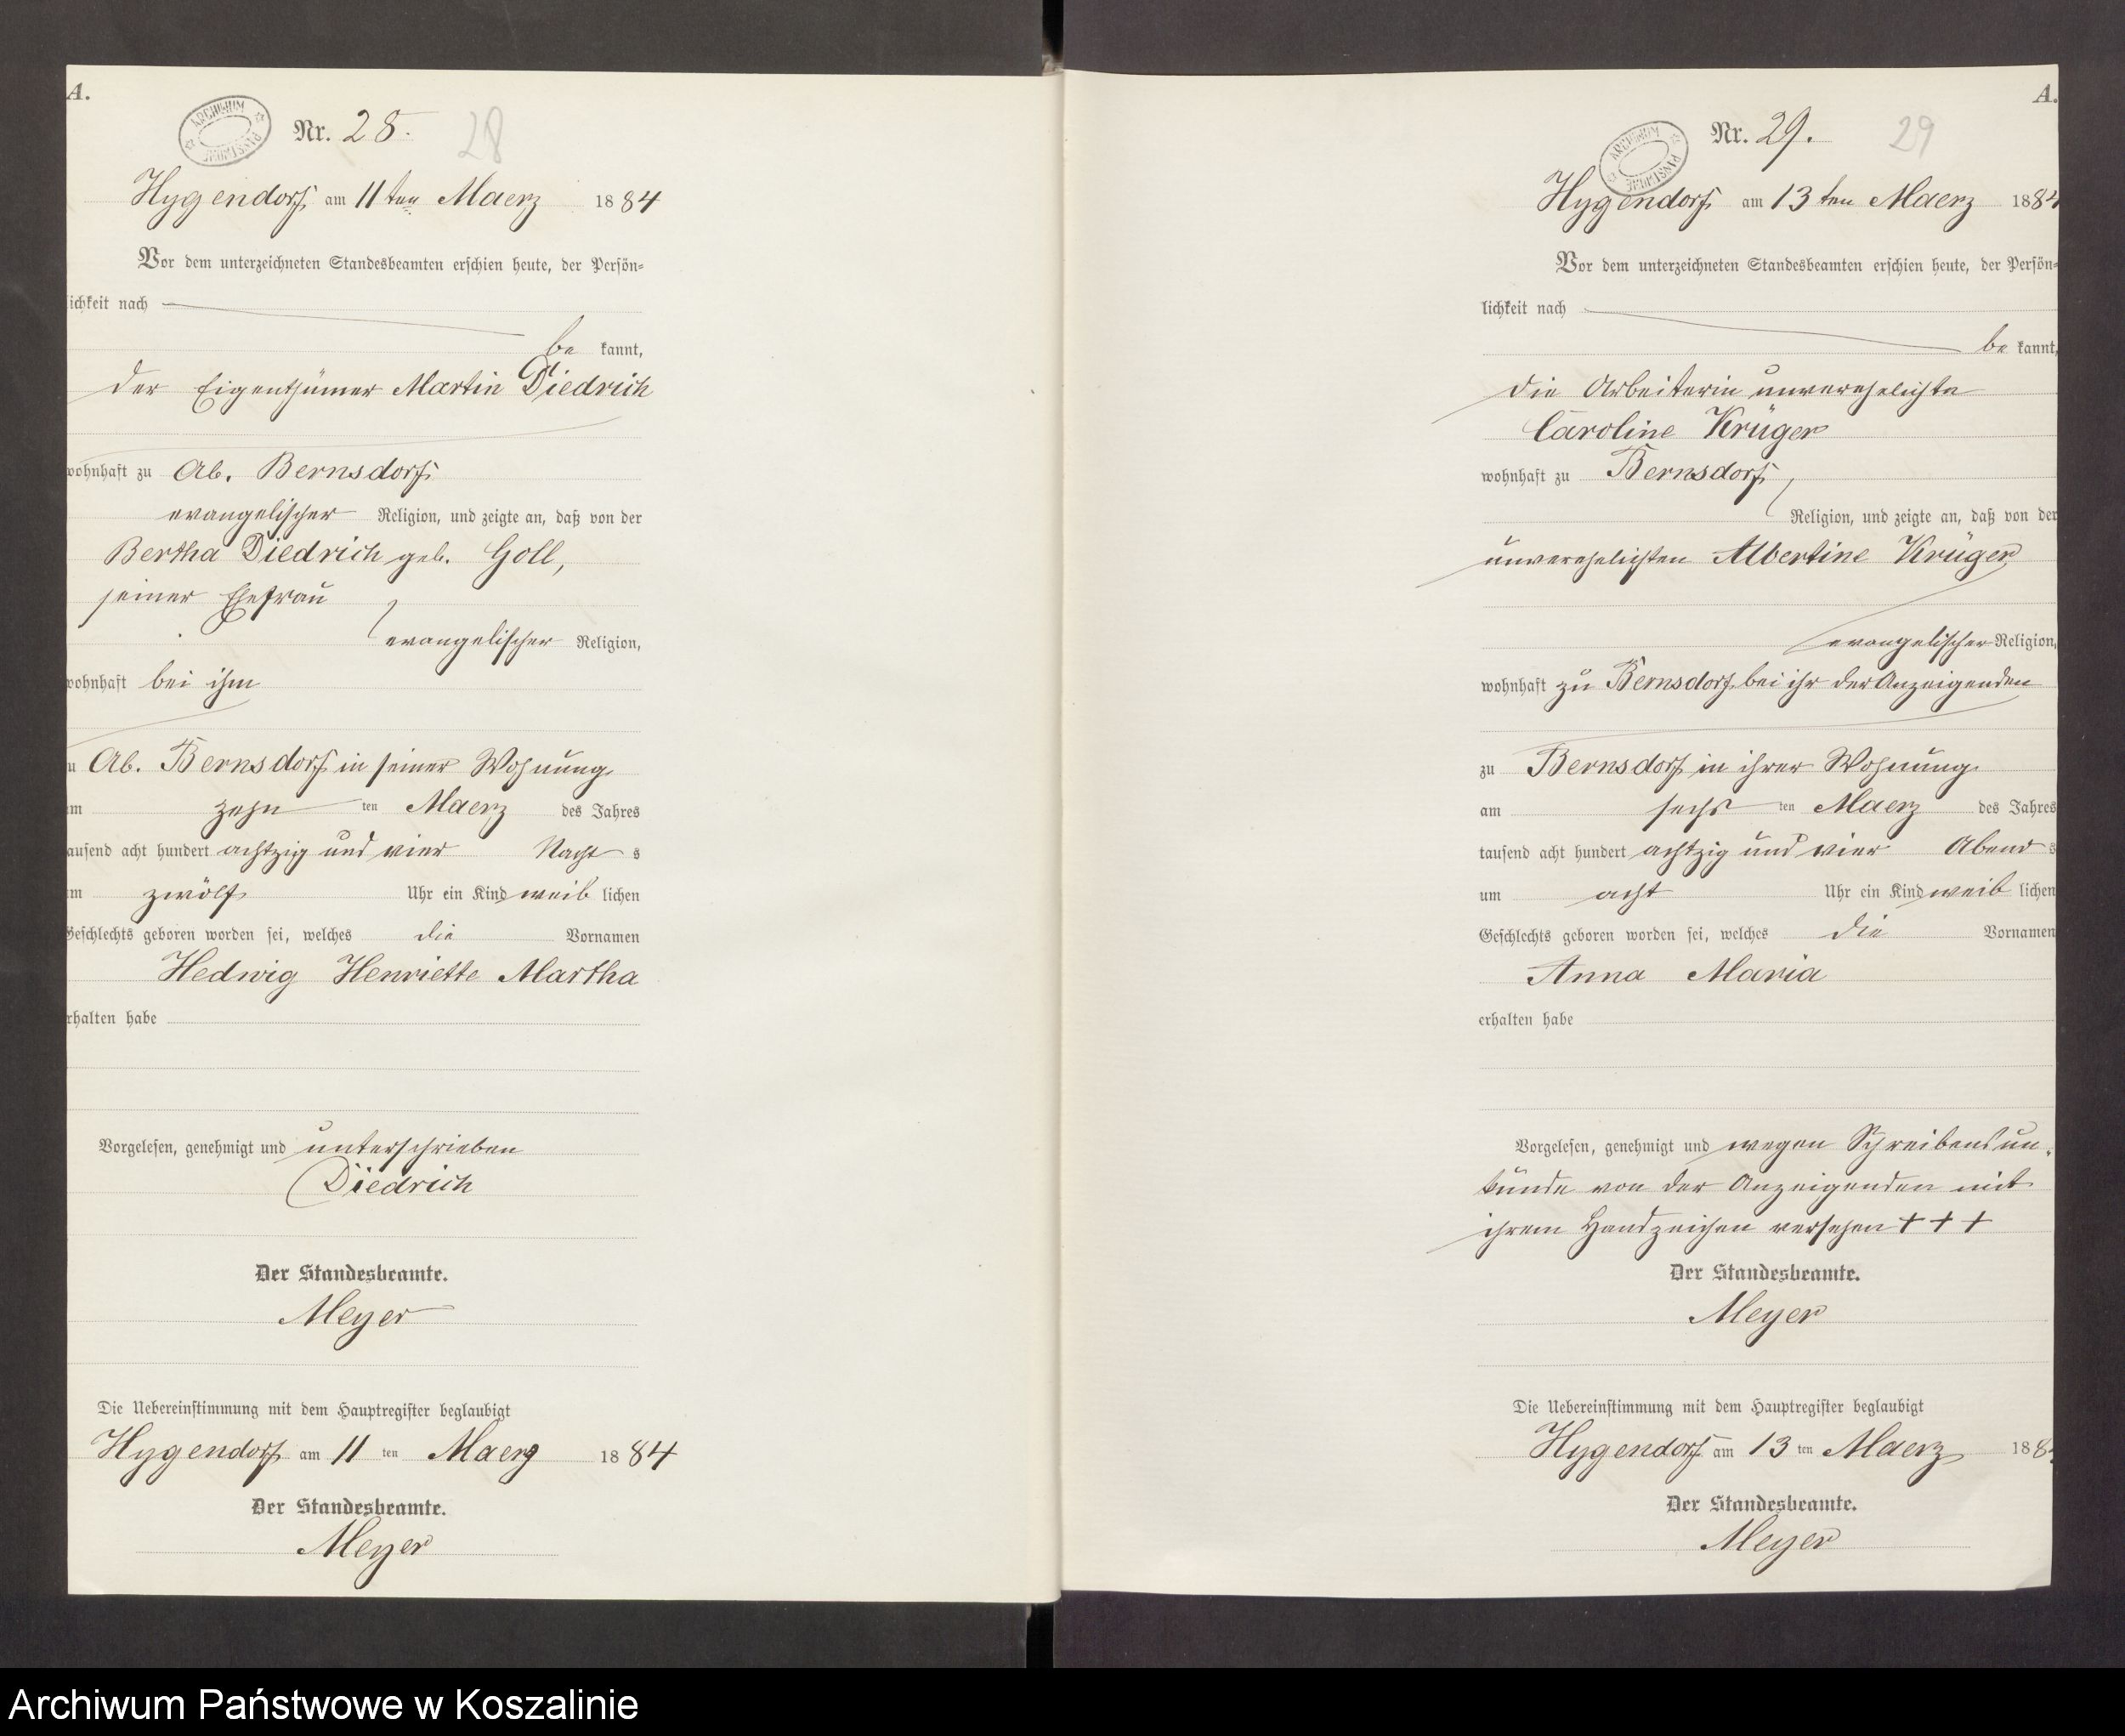 A.
ARCHIWUM PAŃSTWOWE
Nr. 28.
28
Hygendorf am 11ten Maerz 1884
Vor dem unterzeichneten Standesbeamten erschien heute, der Persön=
lichkeit nach
be kannt,
der Eigenthümer Martin Diedrich
wohnhaft zu Ab. Bernsdorf
evangelischer Religion, und zeigte an, daß von der
Bertha Diedrich geb. Goll,
seiner Ehefrau
evangelischer Religion,
wohnhaft bei ihm
zu Ab. Bernsdorf in seiner Wohnung
am zehn ten Maerz des Jahres
tausend acht hundert achtzig und vier Nacht s
um zwölf Uhr ein Kind weib lichen
Geschlechts geboren worden sei, welches die Vornamen
Hedwig Henriette Martha
erhalten habe
Vorgelesen, genehmigt und unterschrieben
Diedrich
Der Standesbeamte.
Meyer
Die Uebereinstimmung mit dem Hauptregister beglaubigt
Hygendorf am 11 ten Maerz 1884
Der Standesbeamte.
Meyer
A.
ARCHIWUM PAŃSTWOWE
Nr. 29.
29
Hygendorf am 13ten Maerz 1884
Vor dem unterzeichneten Standesbeamten erschien heute, der Persön=
lichkeit nach
be kannt,
die Arbeiterin unverehelichte
Caroline Krüger
wohnhaft zu Bernsdorf,
Religion, und zeigte an, daß von der
unverehelichten Albertine Krüger
evangelischer Religion,
wohnhaft zu Bernsdorf bei ihr der Anzeigenden
zu Bernsdorf in ihrer Wohnung
am sechs ten Maerz des Jahres
tausend acht hundert achtzig und vier Abend s
um acht Uhr ein Kind weib lichen
Geschlechts geboren worden sei, welches die Vornamen
Anna Maria
erhalten habe
Vorgelesen, genehmigt und wegen Schreibensun-
kunde von der Anzeigenden mit
ihrem Handzeichen versehen + + +
Der Standesbeamte.
Meyer
Die Uebereinstimmung mit dem Hauptregister beglaubigt
Hygendorf am 13 ten Maerz 188
Der Standesbeamte.
Meyer
Archiwum Państwowe w Koszalinie